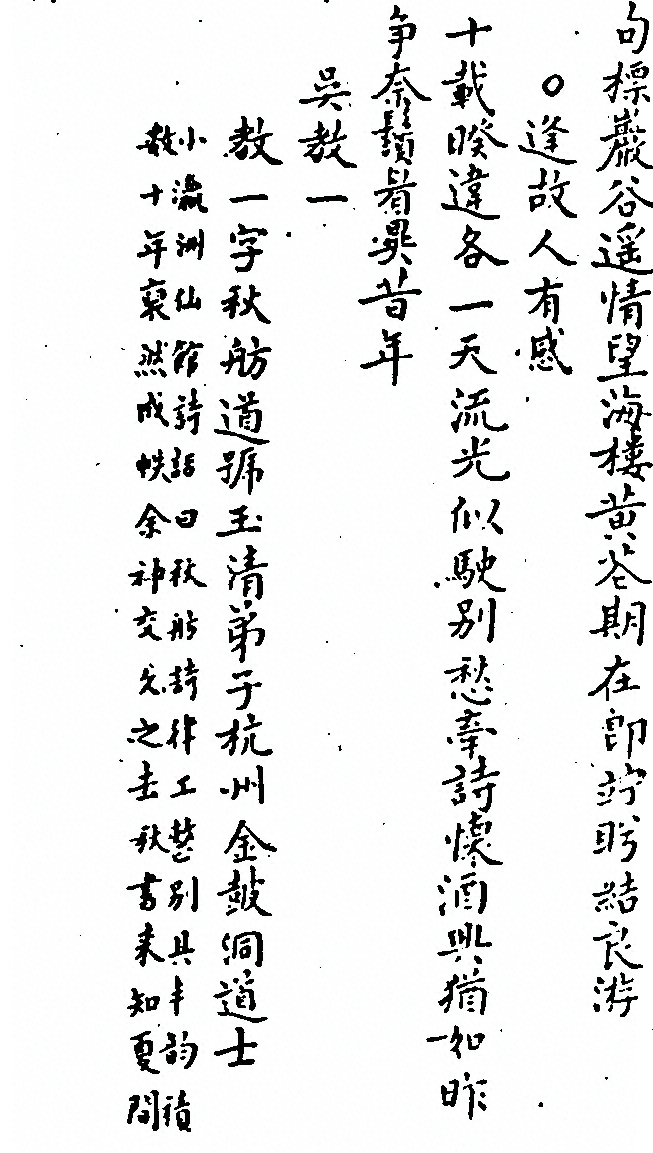 句標巖谷遥情望海樓黃花期在即竚盻結良游
○逢故人有感
十載暌違各一天流光似駛別愁牽詩懷酒興猶如昨
争奈鬚眉異昔年
吳教一
教一字秋舫道號玉清弟子杭州金鼓洞道士
小瀛洲仙館詩話曰秋舫詩律工整別具丰韵積
数十年裒然成帙余神交久之去秋書来知夏間